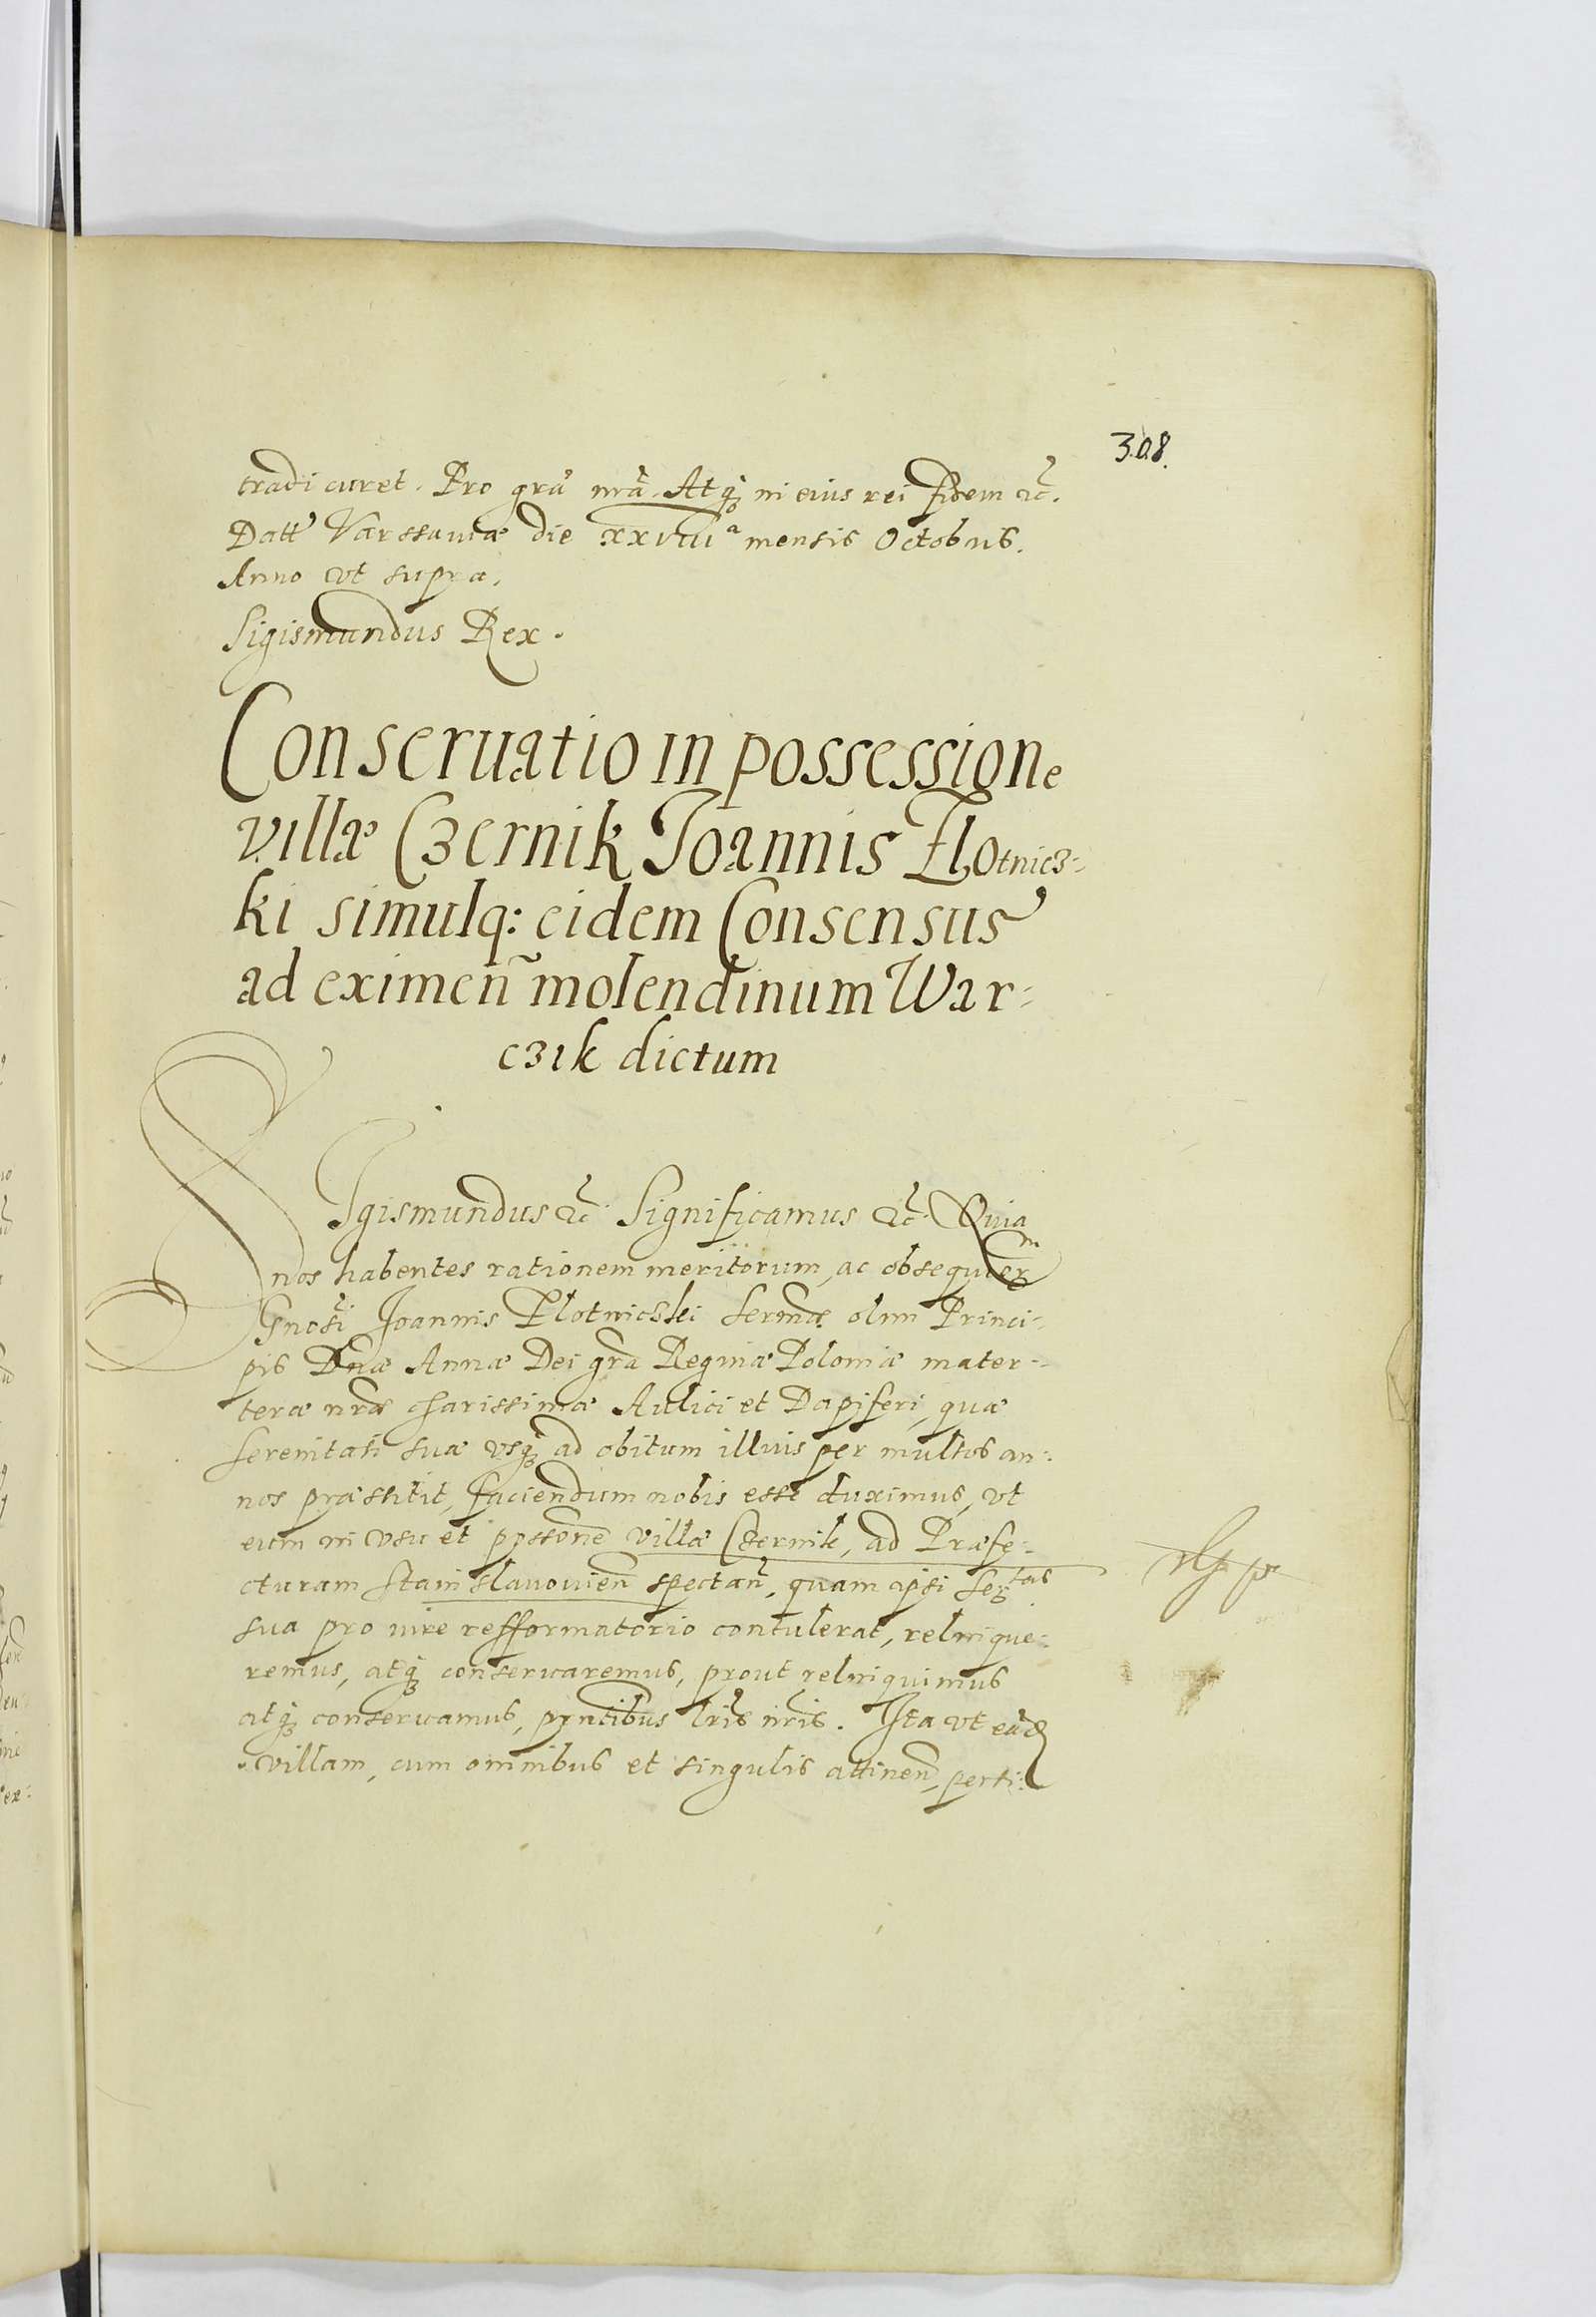 308.
tradi curet. Pro grã nrã. Atq₃ in eius rei fidem &c.
Datt Varssauiæ die xxviii a mensis Octobris.
Anno vt supra.
Sigismundus Rex.
Conseruatio in possessione
villæ Czernik Joannis Plotnicz=
ki simulq: eidem Consensus
ad eximeñ molendinum War=
czik dictum
SIgismundus &c. Significamus &c. Quia
nos habentes rationem meritorum, ac obsequiorm
Gnosi Joannis Plotniczki Sermæ olim Princi=
pis Dnæ Annæ Dei gra Reginæ Poloniæ mater=
teræ nræ charissimæ Aulici et Dapiferi, quæ
Serenitati suæ vsq₃ ad obitum illius per multos an=
nos præstitit, faciendum nobis esse duximus, vt
eum in vsu et possone villæ Czernik, ad Præfe=
cturam Stanislauouien̄ spectan̄, quam ipsi Sertas
sua pro iure refformatorio contulerat, relinque=
remus, atq₃ conseruaremus, prout relinquimus
atq₃ conseruamus, pnntibus lris nris. Ita vt eãd
villam, cum omnibus et singulis attinen̄, perti=